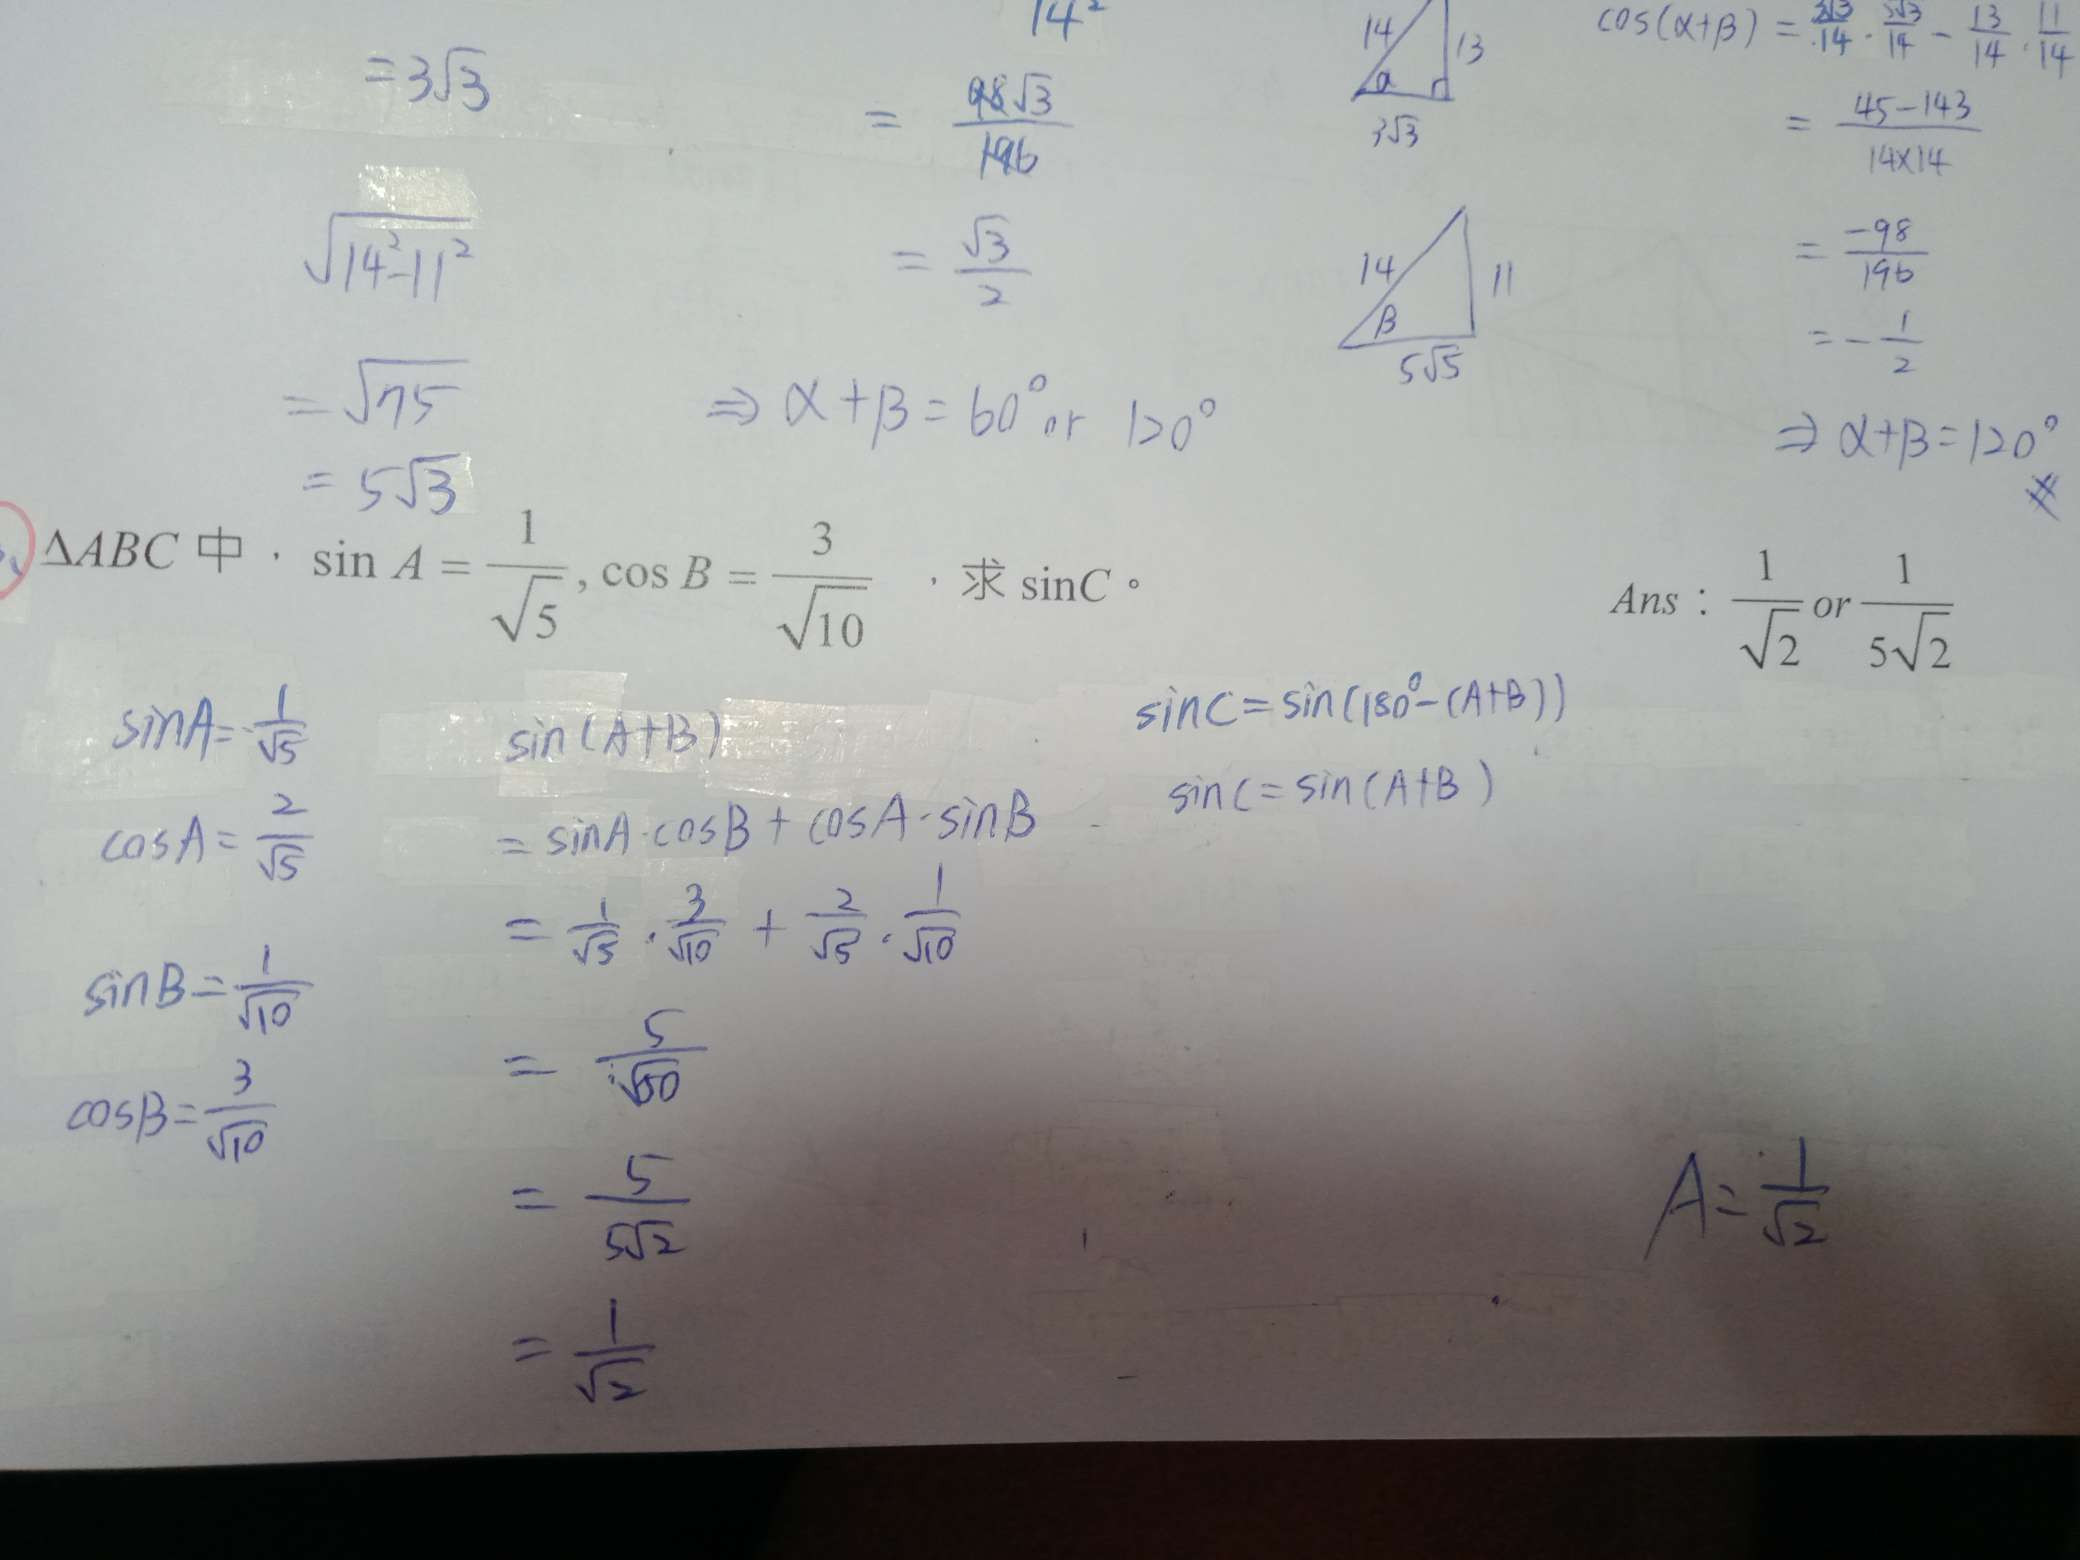 14²
= 3√3
= 98√3/196
√(14²-11²)
= √3/2
= √75
= 5√3
⇒ α+β = 60° or 120°
14
13
α
3√3
14
11
β
5√5
cos(α+β) = 3√3/14 · 5√3/14 - 13/14 · 11/14
= (45-143)/(14×14)
= -98/196
= -1/2
⇒ α+β = 120°
ΔABC 中,sin A = 1/√5, cos B = 3/√10 ,求 sinC。
Ans:1/√2 or 1/5√2
sinA = 1/√5
cosA = 2/√5
sinB = 1/√10
cosB = 3/√10
sin(A+B)
= sinA·cosB + cosA·sinB
= 1/√5 · 3/√10 + 2/√5 · 1/√10
= 5/√50
= 5/5√2
= 1/√2
sinC = sin(180°-(A+B))
sinC = sin(A+B)
A = 1/√2